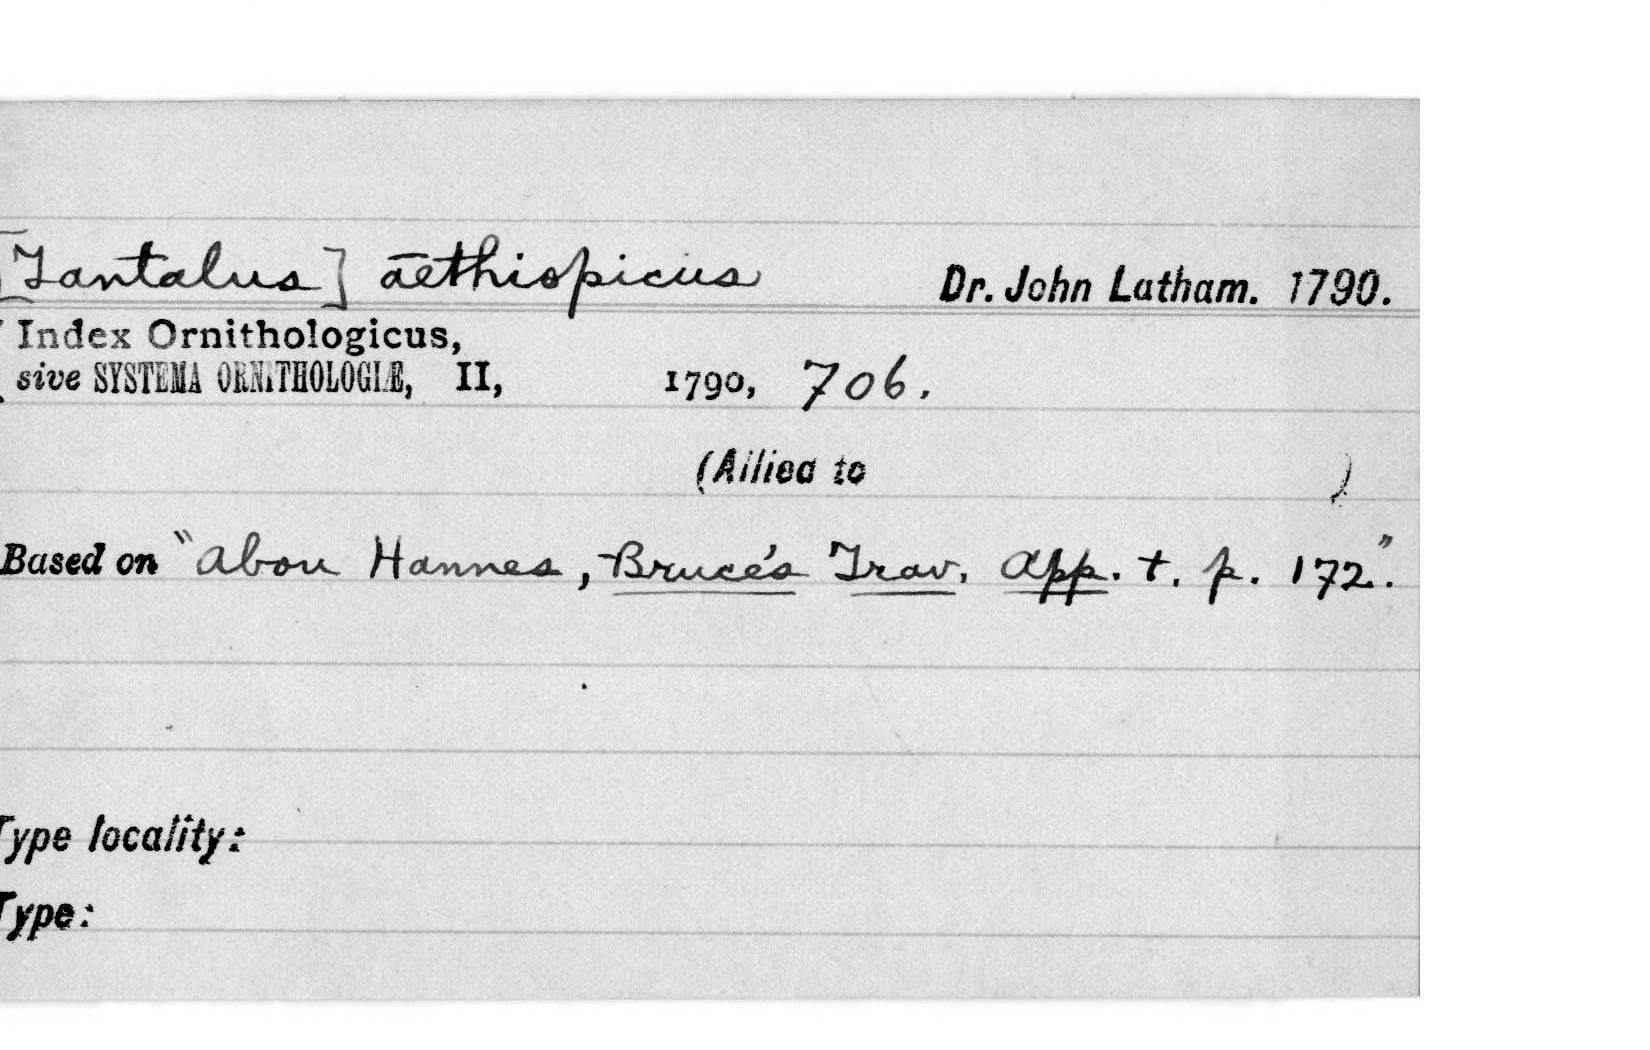 [Tantalus] aethiopicus Dr. John Latham. 1790.
Index Ornithologicus,
sive SYSTEMA ORNITHOLOGIÆ, II, 1790, 706.
(Allied to )
Based on "Abou Hannes, Bruce's Trav. App. t. p. 172".
Type locality:
Type: